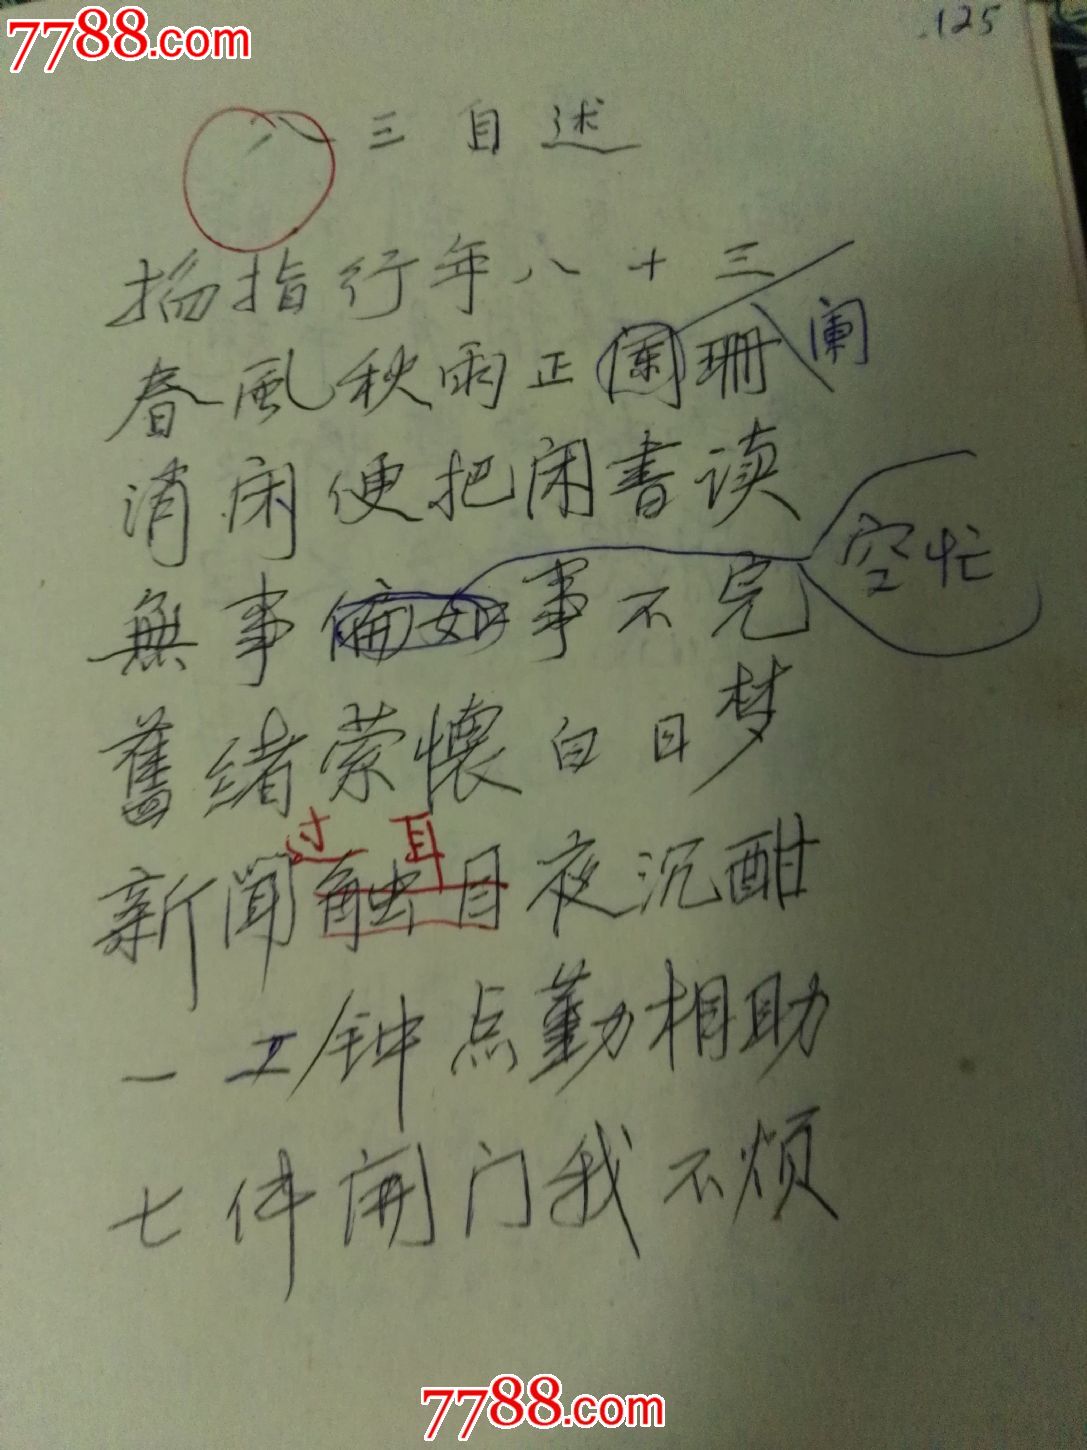 7788.com
125
八三自述
搊指行年八十三
春風秋雨正阑珊
阑
消闲便把闲書读
空忙
無事偏如事不完
舊绪萦懷白日梦
过耳
新闻触目夜沉酣
一工钟点勤相助
七件開门我不烦
7788.com